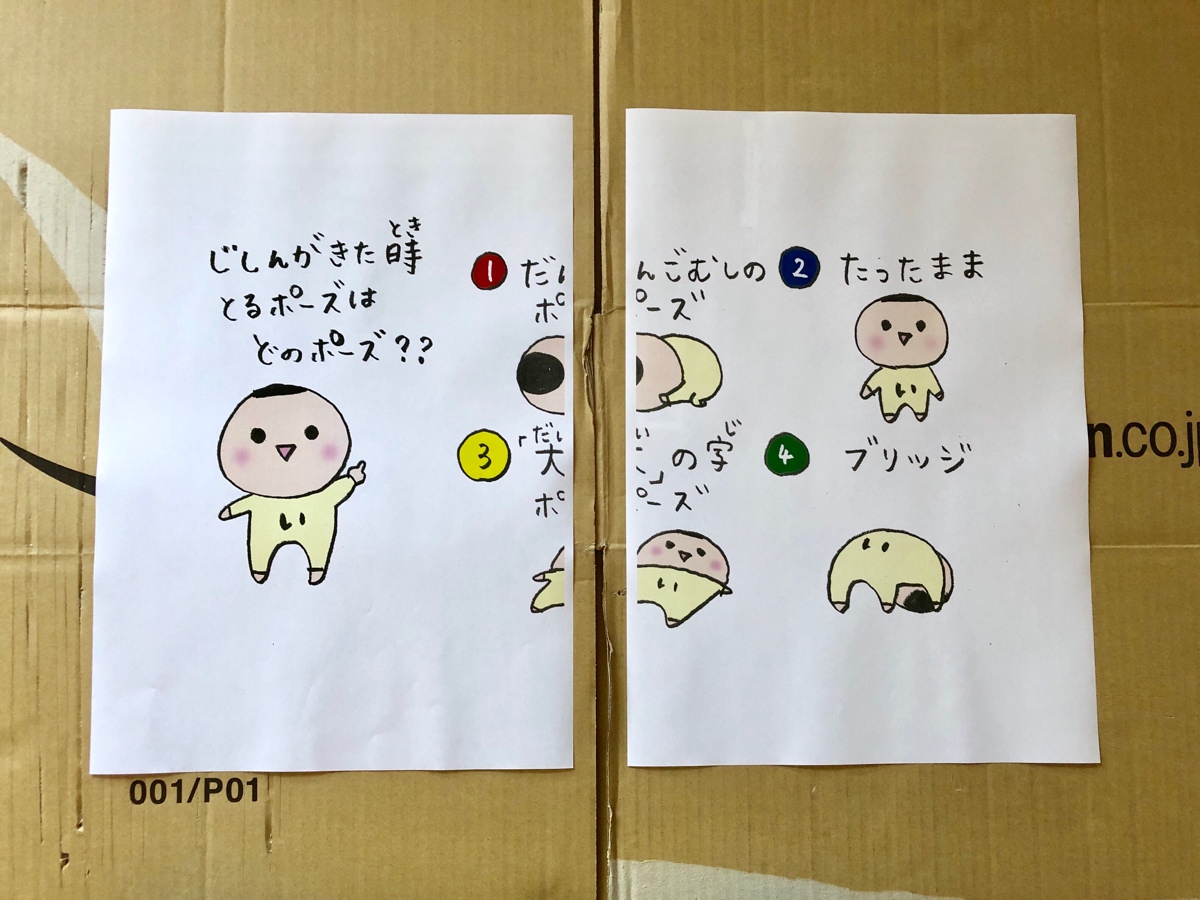 とき
じしんがきた時
とるポーズは
どのポーズ??
い
1 だん
ポ
だい
3 「大
ポ
んごむしの
ーズ
2 たったまま
い
い じ
」の字
ーズ
い
4 ブリッジ
い
n.co.jp
001/P01